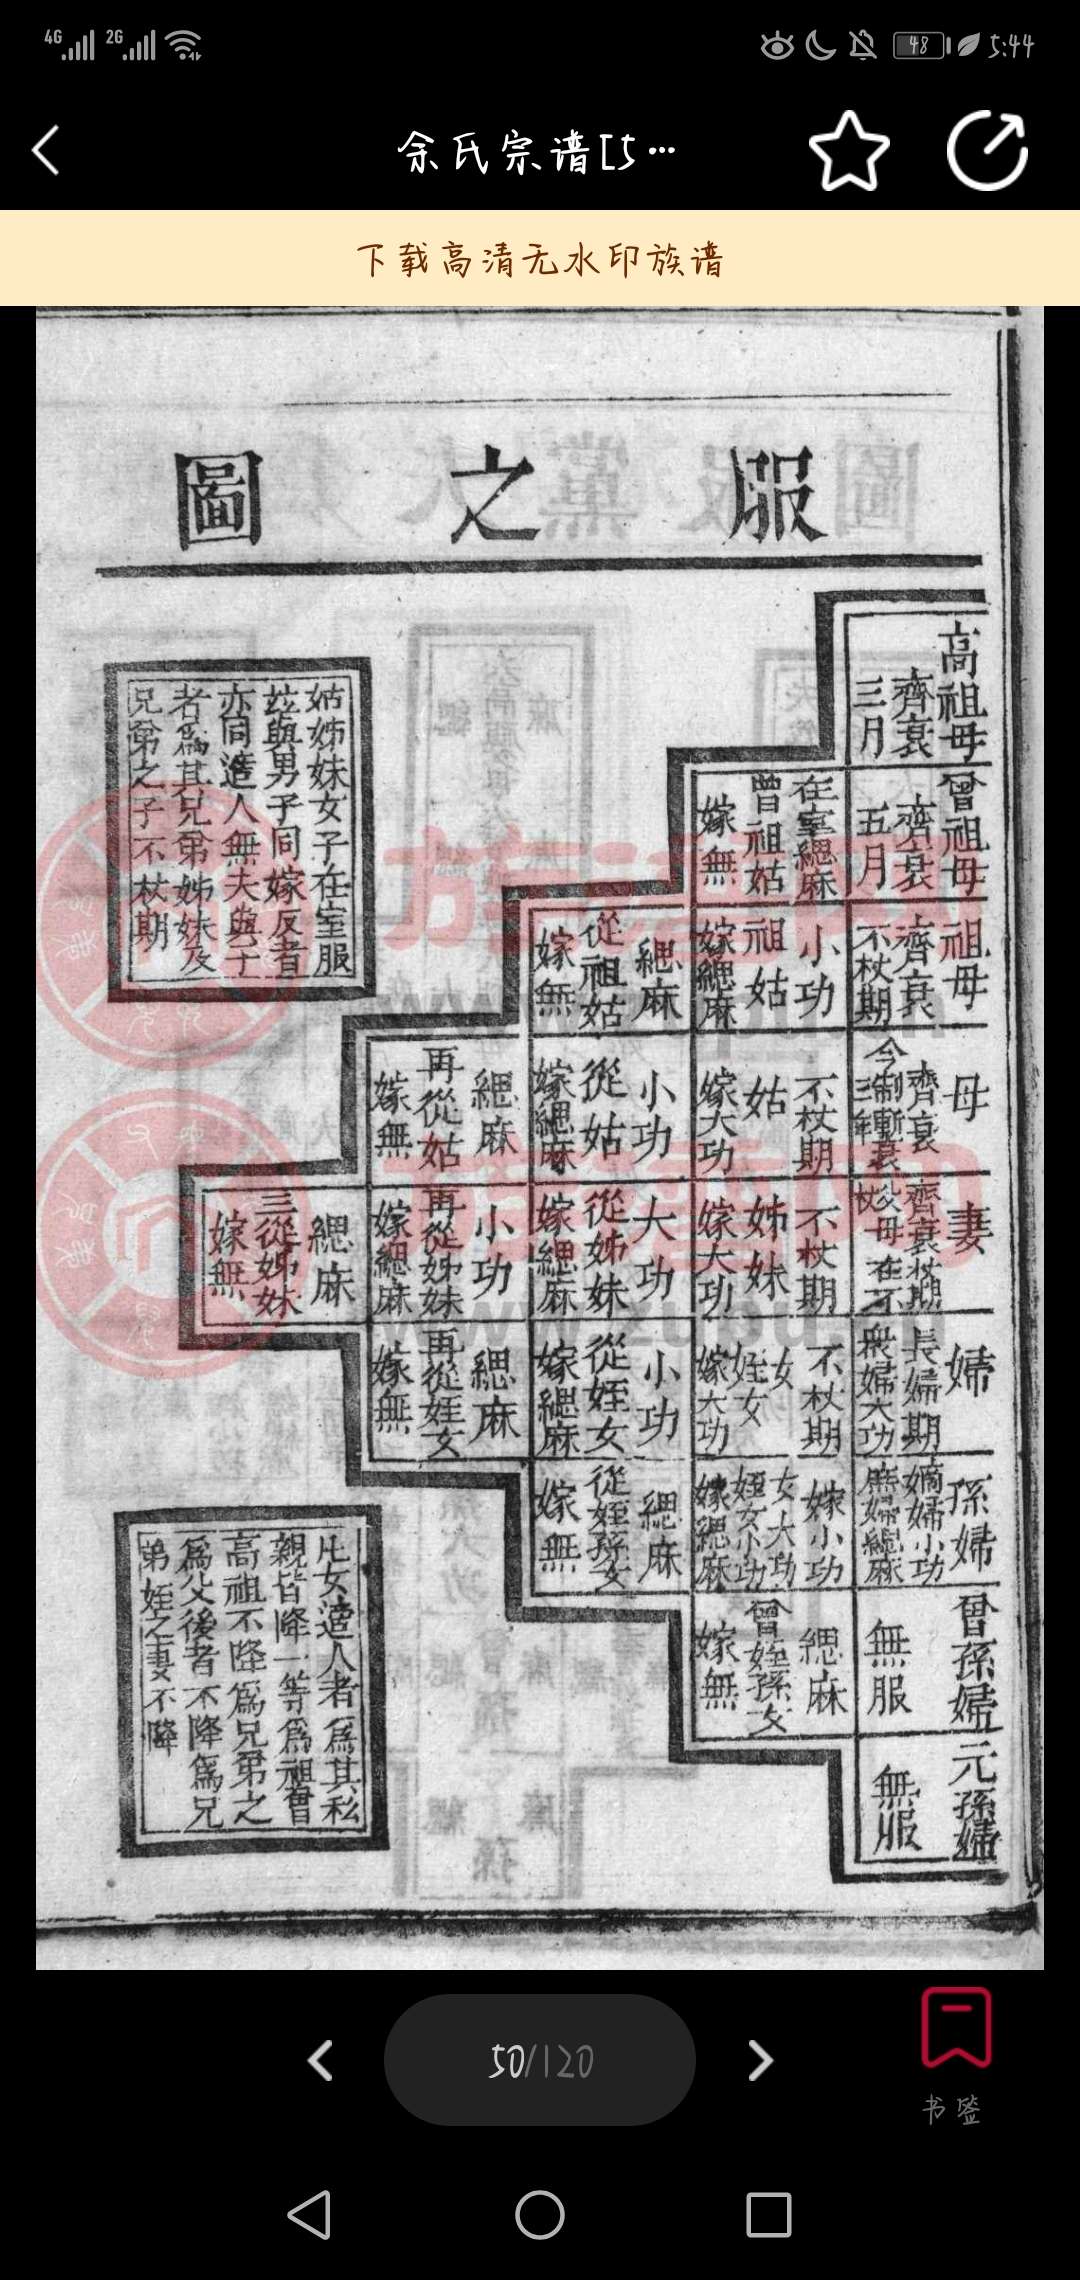 4G 2G 48 5:44
余氏宗谱[5…
下载高清无水印族谱
服之圖
高祖母
齊衰
三月
曾祖母
齊衰
五月
在室緦麻
曾祖姑
嫁無
祖母
齊衰
不杖期
小功
祖姑
嫁緦麻
緦麻
從祖姑
嫁無
母
齊衰
今制斬衰
三年
不杖期
姑
嫁大功
小功
從姑
嫁緦麻
緦麻
再從姑
嫁無
妻
齊衰杖期
父母在不
杖
不杖期
姊妹
嫁大功
大功
從姊妹
嫁緦麻
小功
再從姊妹
嫁緦麻
緦麻
三從姊妹
嫁無
婦
長婦期
衆婦大功
不杖期
女
姪女
嫁大功
小功
從姪女
嫁緦麻
緦麻
再從姪女
嫁無
孫婦
嫡婦小功
庶婦緦麻
嫁小功
女大功
姪女小功
嫁緦麻
緦麻
從姪孫女
嫁無
曾孫婦
無服
緦麻
曾姪孫女
嫁無
元孫婦
無服
姑姊妹女子在室服
竝與男子同嫁反者
亦同適人無夫與子
者爲其兄弟姊妹及
兄弟之子不杖期
凡女適人者爲其私
親皆降一等爲祖曾
高祖不降爲兄弟之
爲父後者不降爲兄
弟姪之妻不降
族谱网
www.zupu.cn
族谱网
www.zupu.cn
50/120
书签